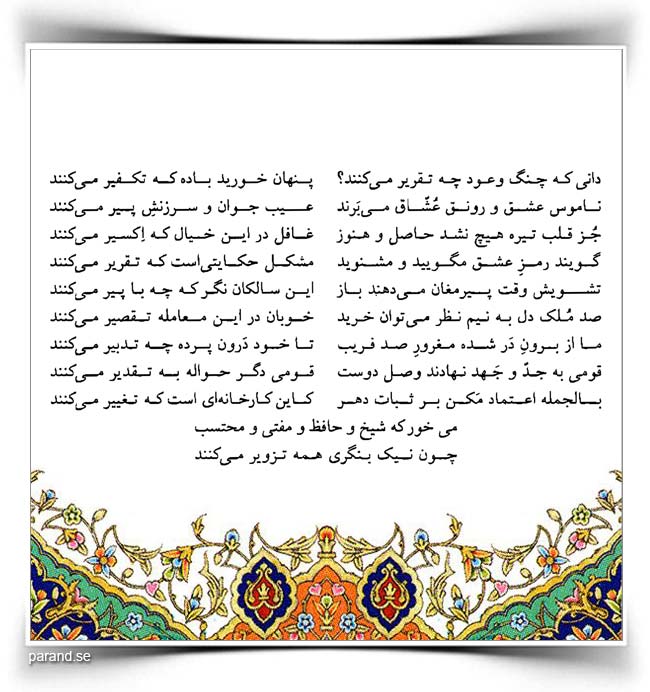 دانی که چنگ وعود چه تقریر می‌کنند؟ پنهان خورید باده که تکفیر می‌کنند
ناموس عشق و رونق عُشّاق می‌بَرند عیب جوان و سرزنشِ پیر می‌کنند
جُز قلب تیره هیچ نشد حاصل و هنوز غافل در این خیال که اِکسیر می‌کنند
گویند رمزِ عشق مگویید و مشنوید مشکل حکایتی‌است که تقریر می‌کنند
تشویش وقت پیرمغان می‌دهند باز این سالکان نگر که چه با پیر می‌کنند
صد مُلک دل به نیم نظر می‌توان خرید خوبان در این معامله تقصیر می‌کنند
ما از برونِ دَر شده مغرورِ صد فریب تا خود دَرون پرده چه تدبیر می‌کنند
قومی به جدّ و جَهد نهادند وصل دوست قومی دگر حواله به تقدیر می‌کنند
بالجمله اعتماد مَکن بر ثبات دهر کاین کارخانه‌ای است که تغییر می‌کنند
می خورکه شیخ و حافظ و مفتی و محتسب
چون نیک بنگری همه تزویر می‌کنند
parand.se